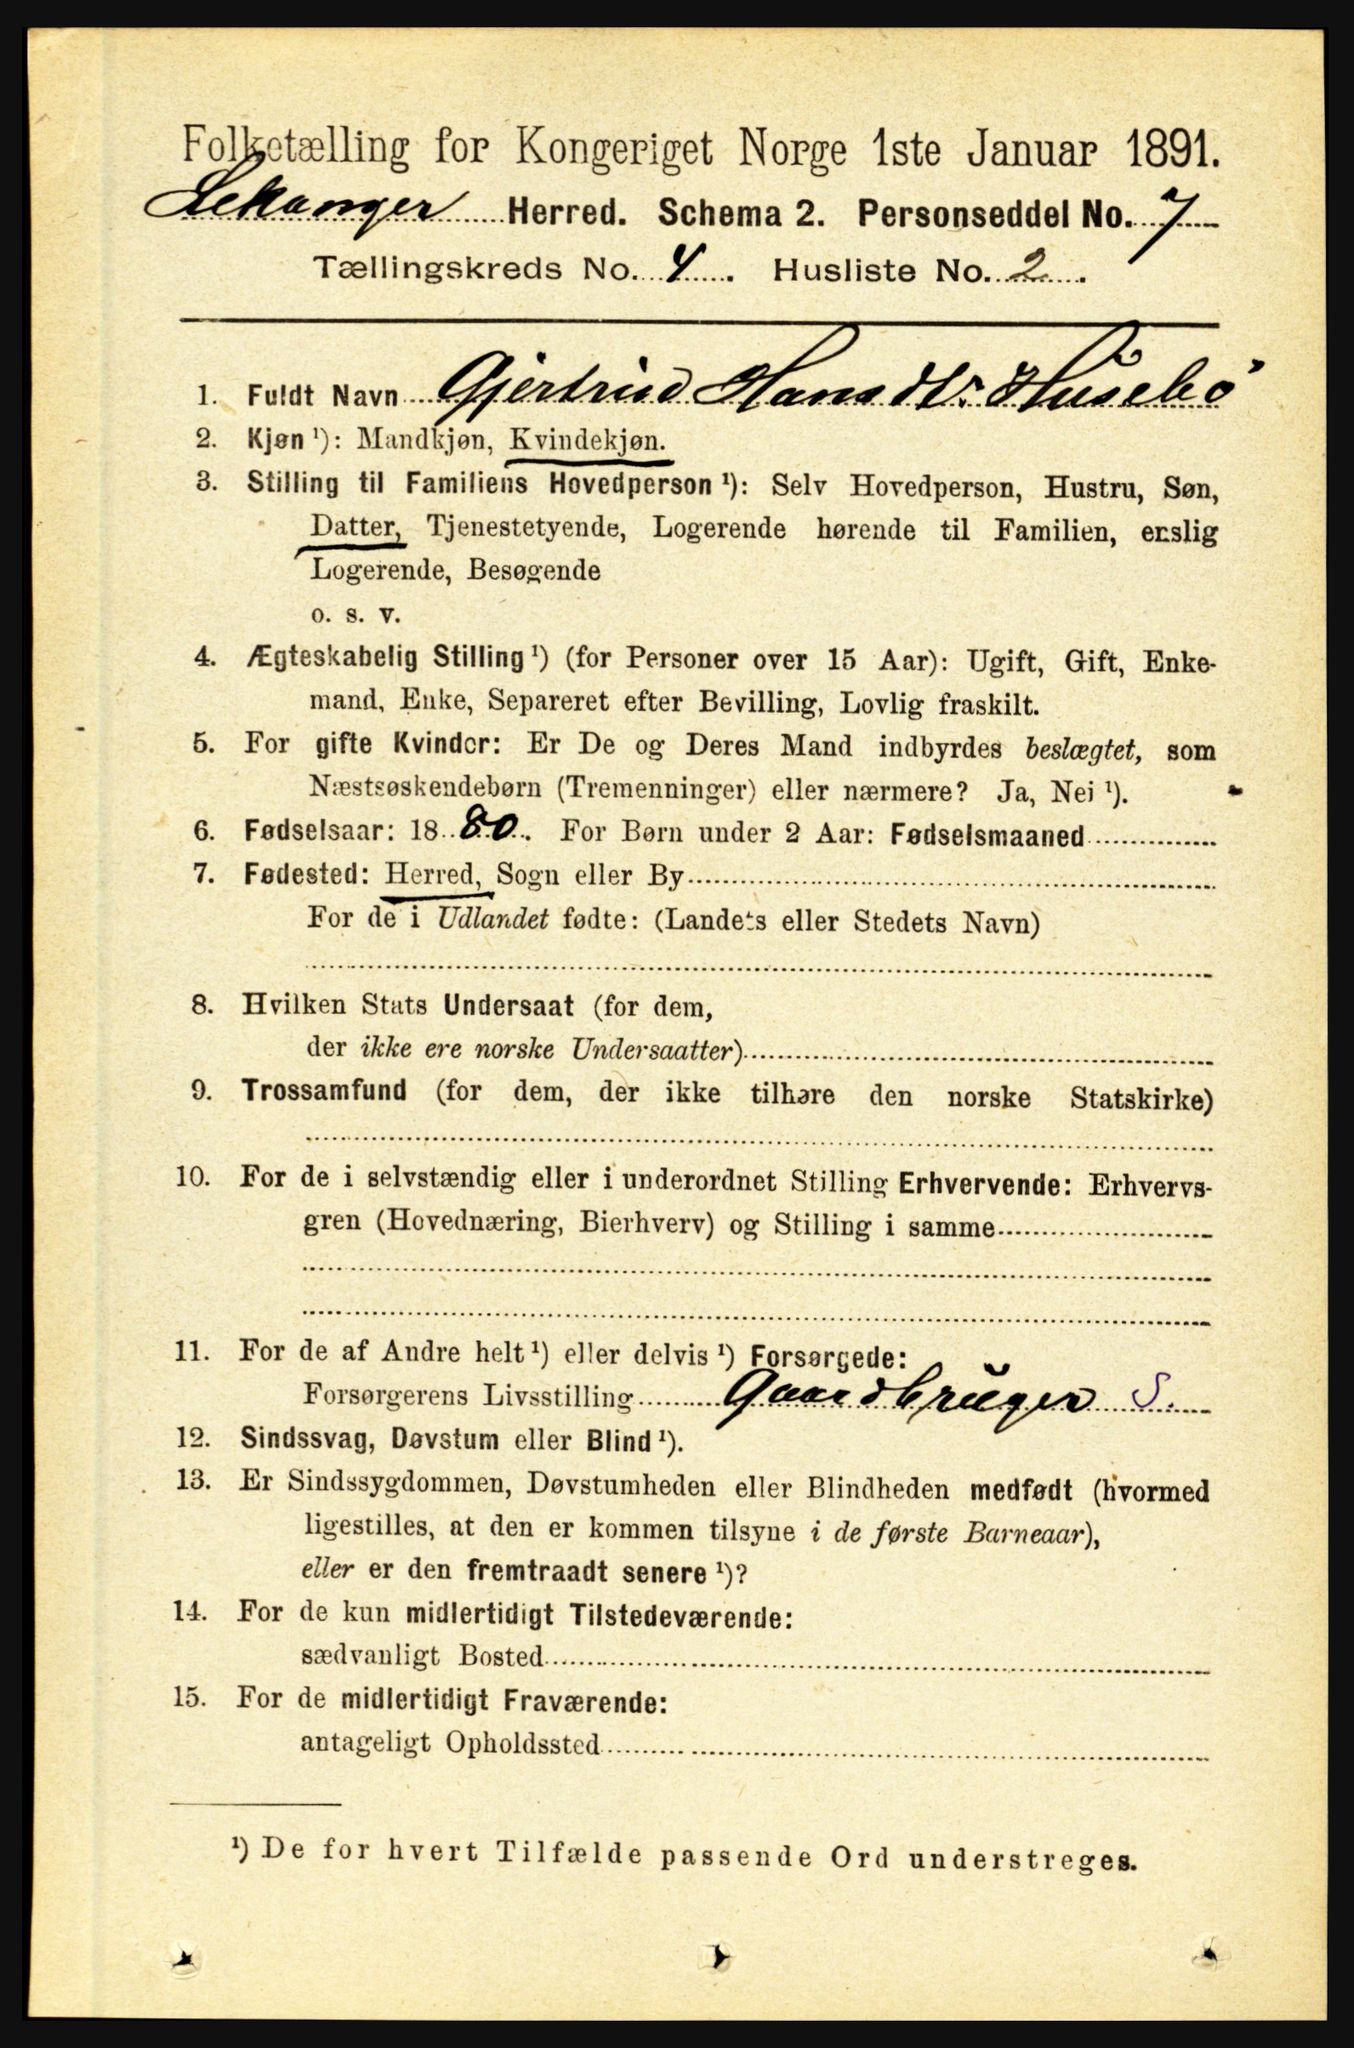 Folketælling for Kongeriget Norge 1ste Januar 1891.
Lekanger Herred. Schema 2. Personseddel No. 7
Tællingskreds No. 4. Husliste No. 2.
1. Fuldt Navn Gjertrud Hansdtr. Husebö
2. Kjøn ¹): Mandkjøn, Kvindekjøn.
3. Stilling til Familiens Hovedperson ¹): Selv Hovedperson, Hustru, Søn,
Datter, Tjenestetyende, Logerende hørende til Familien, enslig
Logerende, Besøgende
o. s. v.
4. Ægteskabelig Stilling ¹) (for Personer over 15 Aar): Ugift, Gift, Enke-
mand, Enke, Separeret efter Bevilling, Lovlig fraskilt.
5. For gifte Kvinder: Er De og Deres Mand indbyrdes beslægtet, som
Næstsøskendebørn (Tremenninger) eller nærmere? Ja, Nei ¹).
6. Fødselsaar: 1880. For Børn under 2 Aar: Fødselsmaaned
7. Fødested: Herred, Sogn eller By
For de i Udlandet fødte: (Landets eller Stedets Navn)
8. Hvilken Stats Undersaat (for dem,
der ikke ere norske Undersaatter)
9. Trossamfund (for dem, der ikke tilhøre den norske Statskirke)
10. For de i selvstændig eller i underordnet Stilling Erhvervende: Erhvervs-
gren (Hovednæring, Bierhverv) og Stilling i samme
11. For de af Andre helt ¹) eller delvis ¹) Forsørgede:
Forsørgerens Livsstilling Gaardbruger S.
12. Sindssvag, Døvstum eller Blind ¹).
13. Er Sindssygdommen, Døvstumheden eller Blindheden medfødt (hvormed
ligestilles, at den er kommen tilsyne i de første Barneaar),
eller er den fremtraadt senere ¹)?
14. For de kun midlertidigt Tilstedeværende:
sædvanligt Bosted
15. For de midlertidigt Fraværende:
antageligt Opholdssted
¹) De for hvert Tilfælde passende Ord understreges.